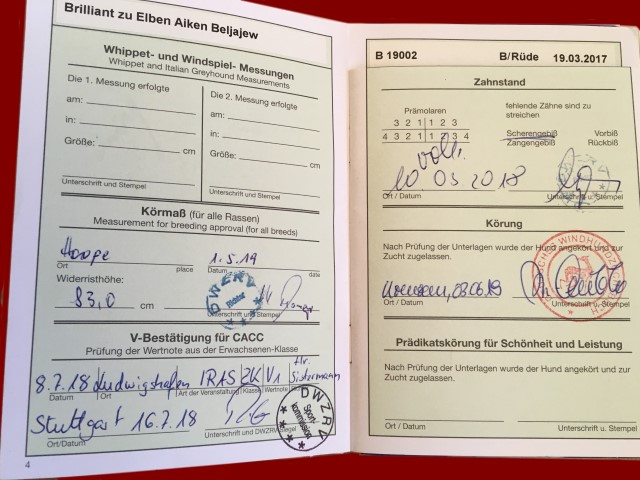 Brilliant zu Elben Aiken Beljajew
Whippet- und Windspiel- Messungen
Whippet and Italian Greyhound Measurements
Die 1. Messung erfolgte
am:
in:
Größe: cm
Unterschrift und Stempel
Die 2. Messung erfolgte
am:
in:
Größe: cm
Unterschrift und Stempel
Körmaß (für alle Rassen)
Measurement for breeding approval (for all breeds)
1.5.19
Ort place Datum date
Widerristhöhe:
83,0 cm
DWZRV
Richter
Unterschrift und Stempel
V-Bestätigung für CACC
Prüfung der Wertnote aus der Erwachsenen-Klasse
8.7.18 Ludwigshafen IRAS ZK V1 Hr. Sistermann
Datum Ort Art der Veranstaltung Klasse Wertnote
Stuttgart 16.7.18
Ort/Datum Unterschrift und DWZRV-Siegel
DWZRV
Sport-
kommission
4
B 19002 B/Rüde 19.03.2017
Zahnstand
Prämolaren
3 2 1 1 2 3
4 3 2 1 1 2 3 4
fehlende Zähne sind zu
streichen
Scherengebiß Vorbiß
Zangengebiß Rückbiß
voll.
10.03.2018
Ort / Datum Unterschrift u. Stempel
Körung
Nach Prüfung der Unterlagen wurde der Hund angekört und zur
Zucht zugelassen.
Ort / Datum Unterschrift u. Stempel
Prädikatskörung für Schönheit und Leistung
Nach Prüfung der Unterlagen wurde der Hund angekört und zur
Zucht zugelassen.
Ort / Datum Unterschrift u. Stempel